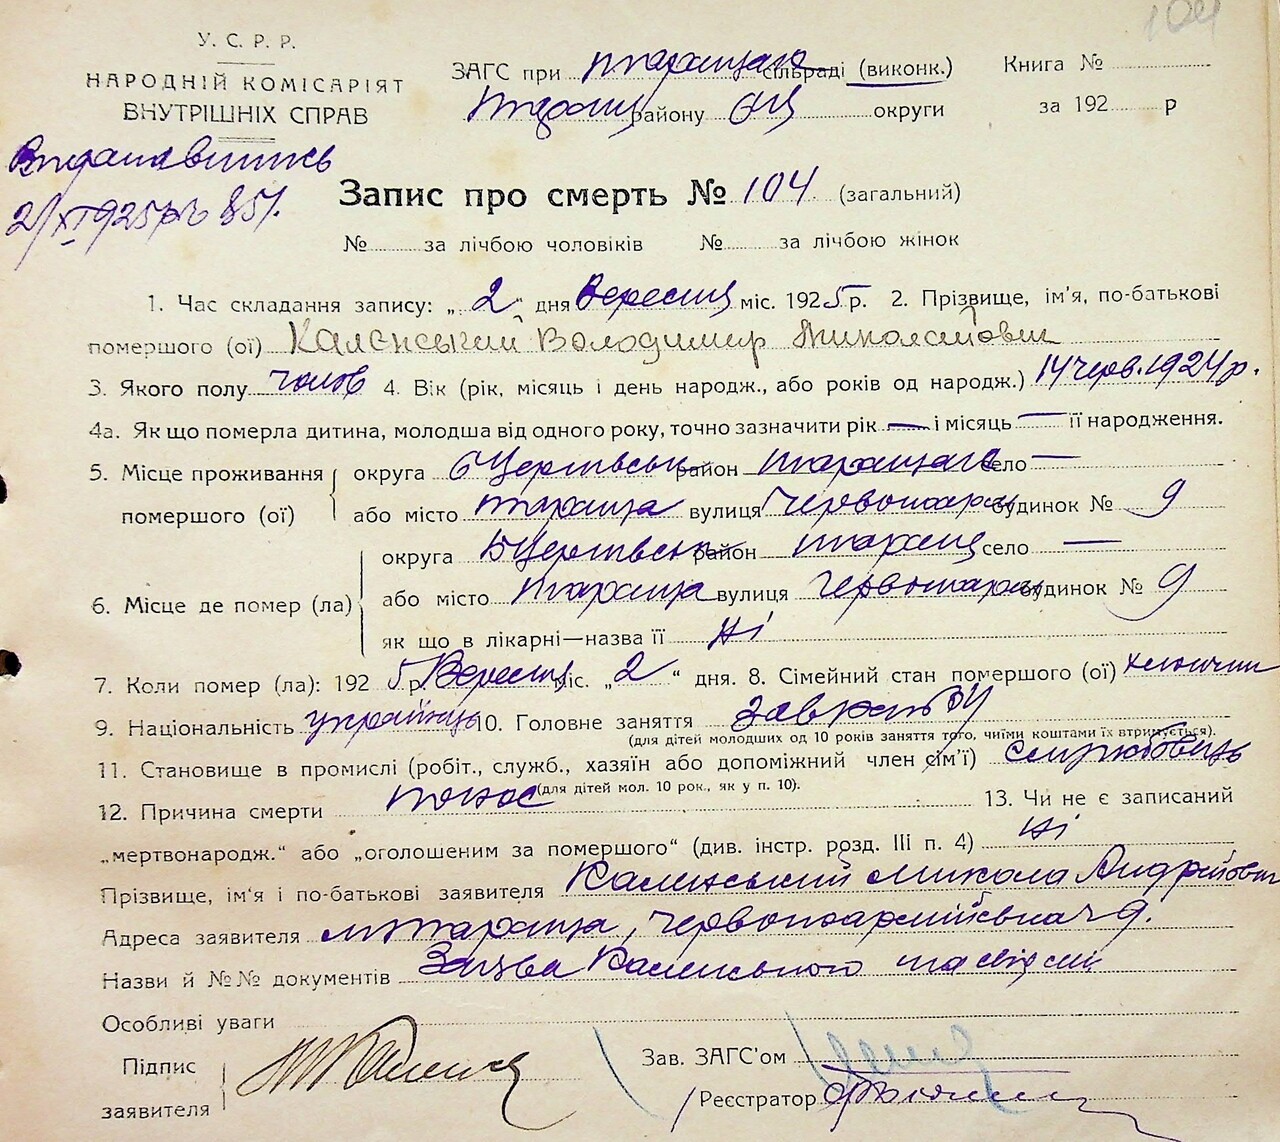 104
У. С. Р. Р.
НАРОДНІЙ КОМІСАРІЯТ
ВНУТРІШНІХ СПРАВ
ЗАГС при Таращан сільраді (виконк.)
Таращ району БЦ округи
Книга №
за 192 р
2/XI 925р
Запис про смерть № 104 (загальний)
№ за лічбою чоловіків № за лічбою жінок
1. Час складання запису: „2“ дня Вересня міс. 1925 р. 2. Прізвище, ім'я, по-батькові
помершого (ої) Каленський Володимир Миколайович
3. Якого полу чолов 4. Вік (рік, місяць і день народж., або років од народж.) 14 черв. 1924 р.
4а. Як що померла дитина, молодша від одного року, точно зазначити рік — і місяць — її народження.
5. Місце проживання помершого (ої) округа БЦерківськ район Таращан село —
або місто Тараща вулиця Червоноарм будинок № 9
6. Місце де помер (ла) округа БЦерківськ район Таращ село —
або місто Тараща вулиця Червоноарм будинок № 9
як що в лікарні—назва її Ні
7. Коли помер (ла): 1925 р. Вересня міс. „2“ дня. 8. Сімейний стан помершого (ої) хлопчик
9. Національність українець 10. Головне заняття
(для дітей молодших од 10 років заняття того, чиїми коштами їх втримується).
11. Становище в промислі (робіт., служб., хазяїн або допоміжний член сім'ї) службовець
(для дітей мол. 10 рок., як у п. 10).
12. Причина смерти понос 13. Чи не є записаний
„мертвонародж.“ або „оголошеним за помершого“ (див. інстр. розд. III п. 4) Ні
Прізвище, ім'я і по-батькові заявителя Каленський Микола Андрійович
Адреса заявителя м Тараща, Червоноармійська 9.
Назви й №№ документів Заява Каленського та
Особливі уваги
Підпис заявителя
Зав. ЗАГС'ом
Реєстратор